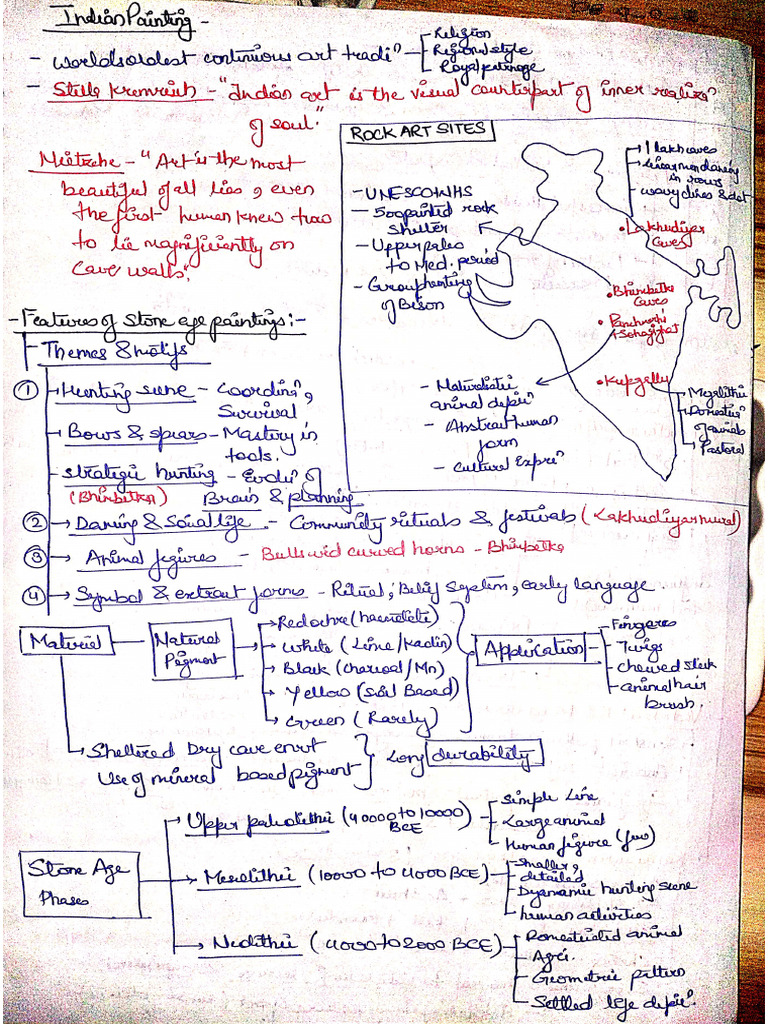 Indian Painting -
- worlds oldest continuous art tradiⁿ
Religion
Regional style
Royal patronage
- Stella Kramrisch - "Indian art is the visual counterpart of inner realizⁿ
of soul."
Nietzche - "Art is the most
beautiful of all lies, even
the first human knew how
to lie magnificiently on
cave walls".
ROCK ART SITES
- UNESCO WHS
- 500 painted rock
shelter
- Upper paleo
to Med. period
- Group hunting
of Bison
1 lakh caves
linear man dancing
in rows
wavy lines & dot
Lakhudiyar
Caves
Bhimbetka
Caves
Panchmarhi
Kupgallu
Megalithic
Domesticⁿ
of animals
Pastoral
- Naturalistic
animal depicⁿ
- Abstract human
form
- Cultural Expreⁿ
- Features of Stone age paintings:-
Themes & motifs
① Hunting scene - Coordinⁿ,
Survival
Bows & spears - Mastery in
tools.
strategic hunting - Evoluⁿ of
(Bhimbetka) Brain & planning
② Dancing & Social life - Community rituals & festivals (Lakhudiyar mural)
③ Animal figures - Bulls wid curved horns - Bhimbetka
④ Symbol & extract forms - Ritual, Belief system, early language
Material
Natural
Pigment
Red ochre (haematite)
White (Lime/Kaolin)
Black (charcoal/Mn)
Yellow (Soil Based)
Green (Rarely)
Application
- Fingers
- Twigs
- chewed stick
- animal hair
brush.
Sheltered Dry cave envt
Use of mineral based pigment
Long durability
Stone Age
Phases
Upper paleolithic (40000 to 10000
BCE)
Simple Line
Large animal
Human figure (few)
Mesolithic (10000 to 4000 BCE)
Smaller,
detailed
Dynamic hunting scene
human activities
Neolithic (4000 to 2000 BCE)
Domesticated animal
Agri.
Geometric pattern
Settled life depicⁿ